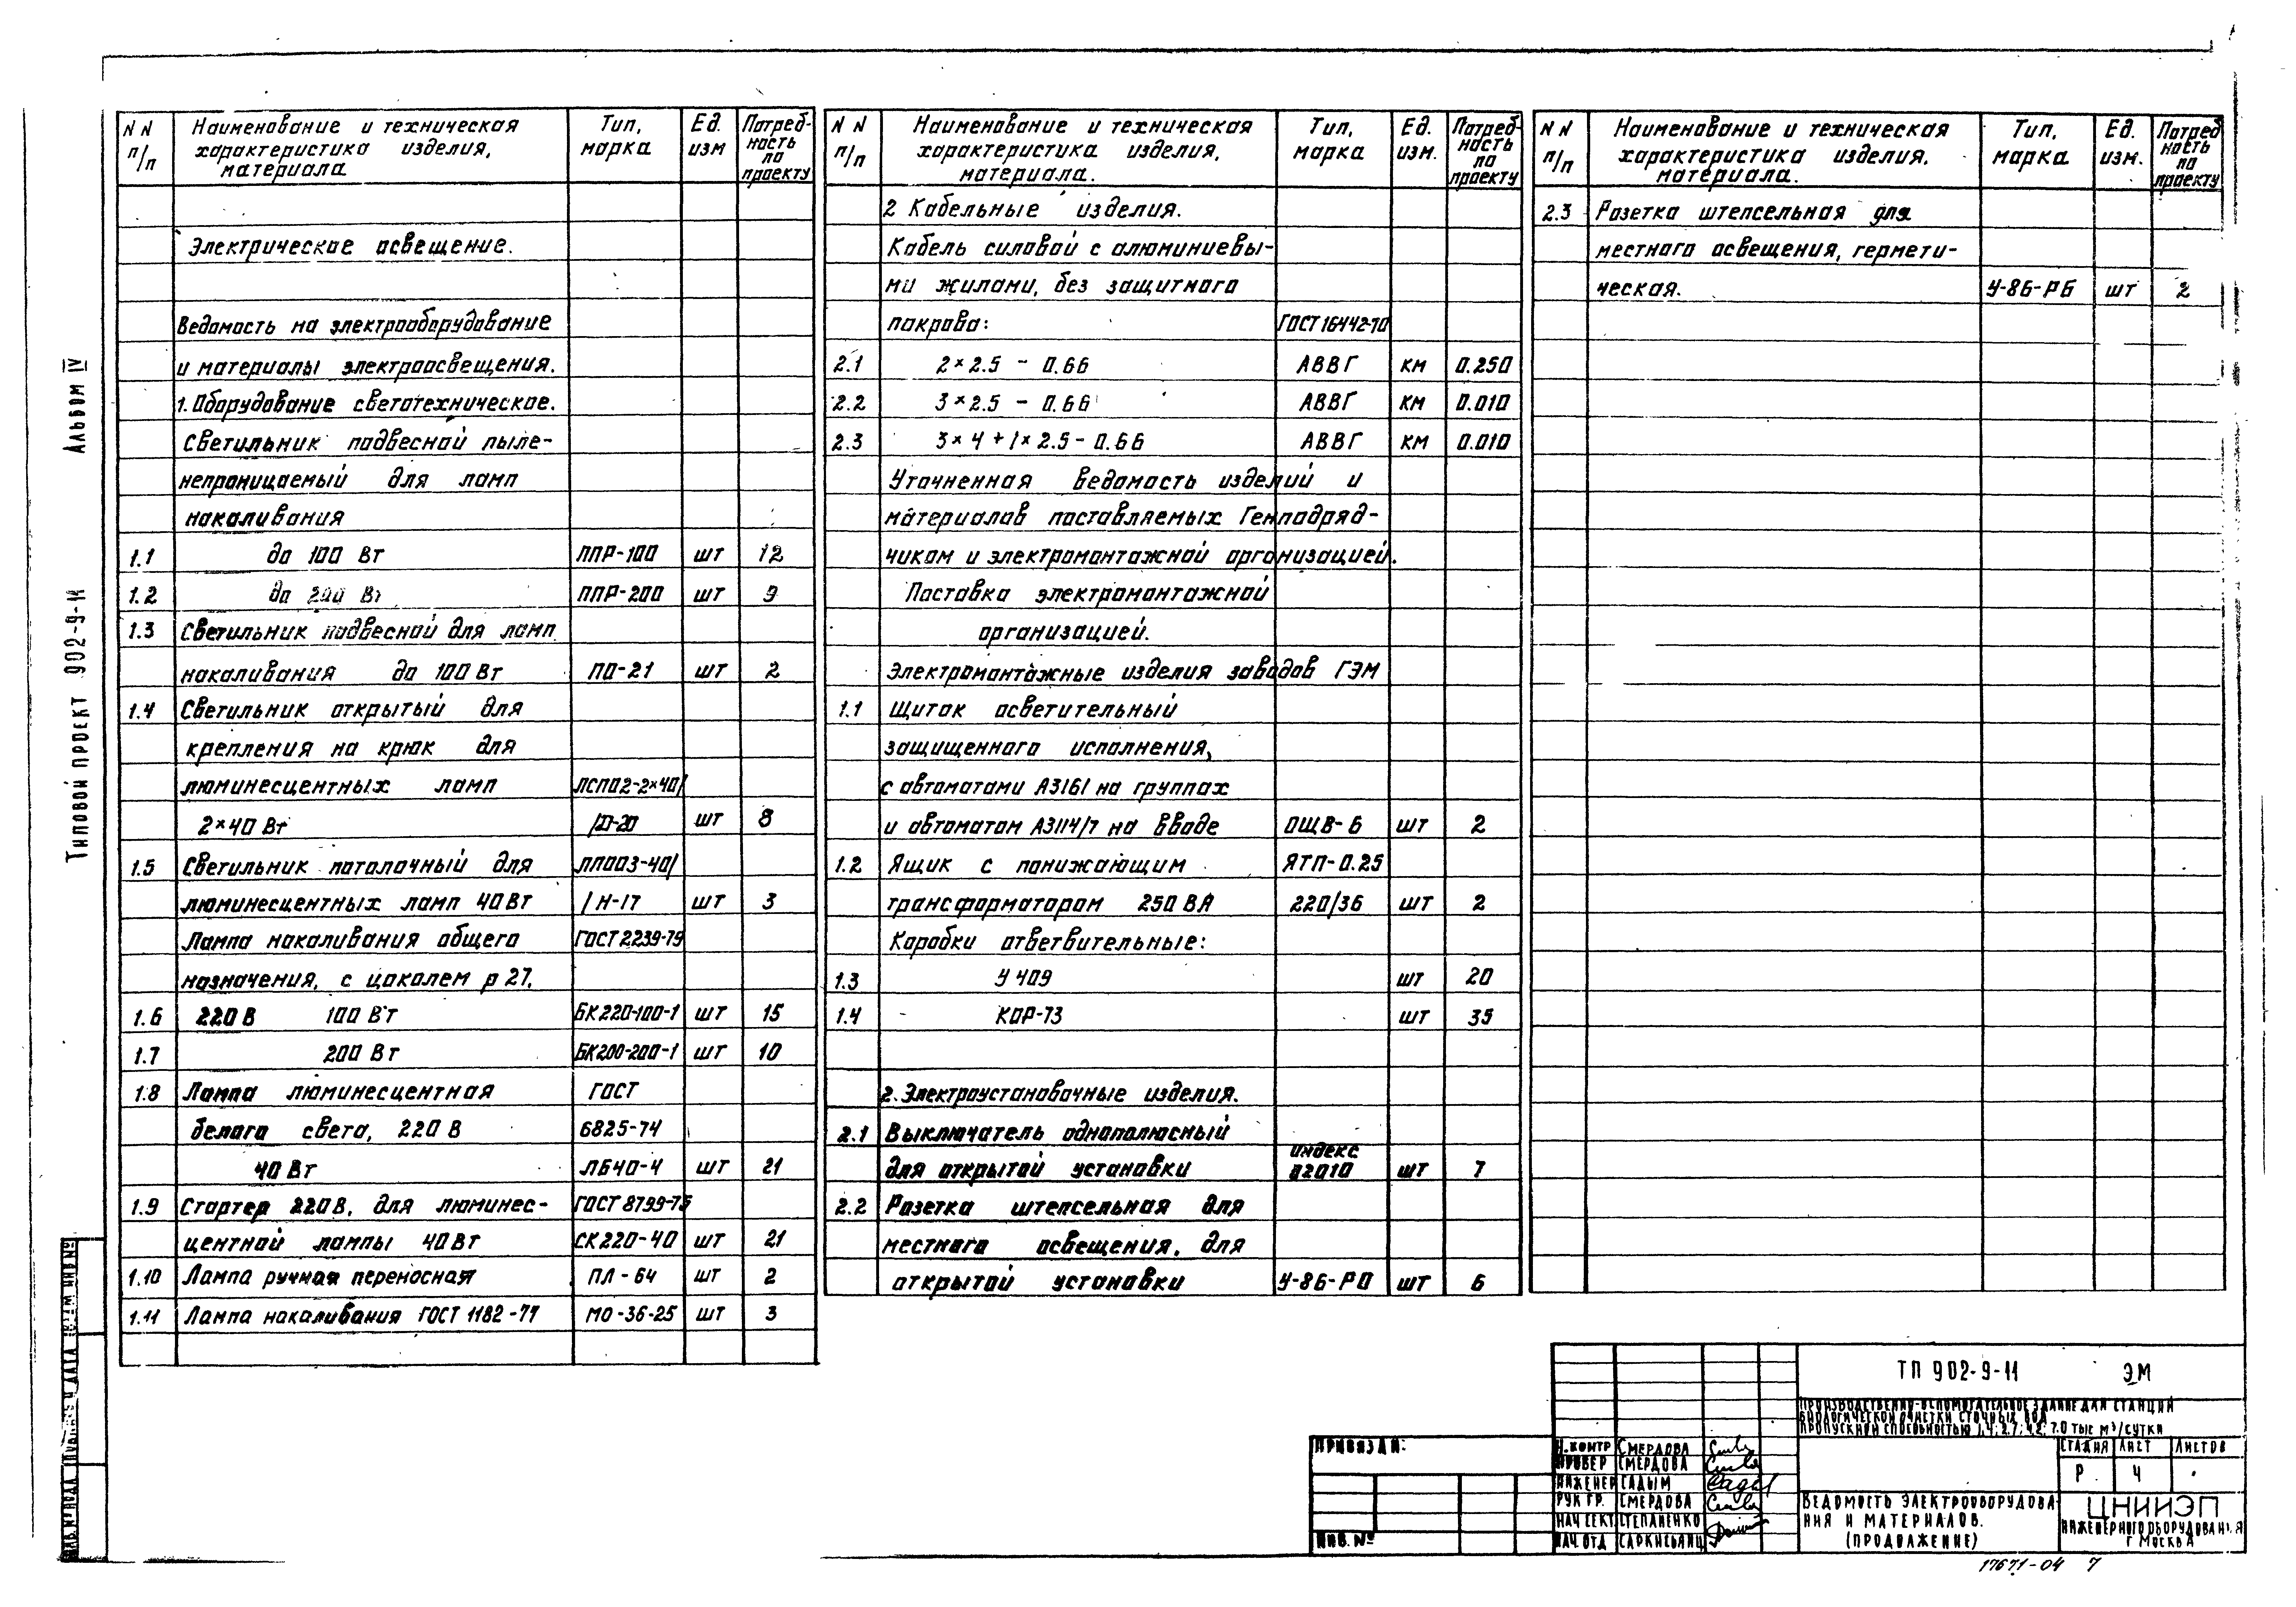 Альбом IV
Типовой проект 902-9-11
N N п/п
Наименование и техническая характеристика изделия, материала
Тип, марка
Ед. изм
Потребность по проекту
Электрическое освещение.
Ведомость на электрооборудование
и материалы электроосвещения.
1. Оборудование светотехническое.
Светильник подвесной пыле-
непроницаемый для ламп
накаливания
1.1 до 100 Вт ППР-100 шт 12
1.2 до 200 Вт ППР-200 шт 9
1.3 Светильник подвесной для ламп
накаливания до 100 Вт ПО-21 шт 2
1.4 Светильник открытый для
крепления на крюк для
люминесцентных ламп ЛСП02-2×40/
2×40 Вт /Д-20 шт 8
1.5 Светильник потолочный для ЛПО03-40/
люминесцентных ламп 40 Вт /Н-17 шт 3
Лампа накаливания общего ГОСТ 2239-79
назначения, с цоколем р 27,
1.6 220 В 100 Вт БК220-100-1 шт 15
1.7 200 Вт БК200-200-1 шт 10
1.8 Лампа люминесцентная ГОСТ
белого света, 220 В 6825-74
40 Вт ЛБ40-4 шт 21
1.9 Стартер 220В, для люминес- ГОСТ 8799-75
центной лампы 40 Вт СК220-40 шт 21
1.10 Лампа ручная переносная ПЛ-64 шт 2
1.11 Лампа накаливания ГОСТ 1182-77 МО-36-25 шт 3
N N п/п
Наименование и техническая характеристика изделия, материала.
Тип, марка
Ед. изм.
Потребность по проекту
2 Кабельные изделия.
Кабель силовой с алюминиевы-
ми жилами, без защитного
покрова: ГОСТ 16442-70
2.1 2×2.5 - 0.66 АВВГ км 0.250
2.2 3×2.5 - 0.66 АВВГ км 0.010
2.3 3×4+1×2.5-0.66 АВВГ км 0.010
Уточненная ведомость изделий и
материалов поставляемых Генподряд-
чиком и электромонтажной организацией.
Поставка электромонтажной
организацией.
Электромонтажные изделия заводов ГЭМ
1.1 Щиток осветительный
защищенного исполнения,
с автоматами А3161 на группах
и автоматом А3114/7 на вводе ОЩВ-6 шт 2
1.2 Ящик с понижающим ЯТП-0.25
трансформатором 250 ВА 220/36 шт 2
Коробки ответвительные:
1.3 У 409 шт 20
1.4 КОР-73 шт 35
2. Электроустановочные изделия.
2.1 Выключатель однополюсный
для открытой установки индекс 02010 шт 7
2.2 Розетка штепсельная для
местного освещения, для
открытой установки У-86-РО шт 6
N N п/п
Наименование и техническая характеристика изделия, материала.
Тип, марка
Ед. изм.
Потребность по проекту
2.3 Розетка штепсельная для
местного освещения, гермети-
ческая. У-86-РБ шт 2
ТП 902-9-11 ЭМ
Производственно-вспомогательное здание для станции
биологической очистки сточных вод
пропускной способностью 1,4; 2,7; 4,2; 7.0 тыс м³/сутки
Привязан:
Инв. №
Н.контр Смердова
Провер Смердова
Инженер Гадым
Рук гр. Смердова
Нач сект Степаненко
Нач. отд Саркисьянц
Стадия Лист Листов
Р 4
Ведомость электрооборудова-
ния и материалов.
(продолжение)
ЦНИИЭП
инженерного оборудования
г Москва
17671-04 7